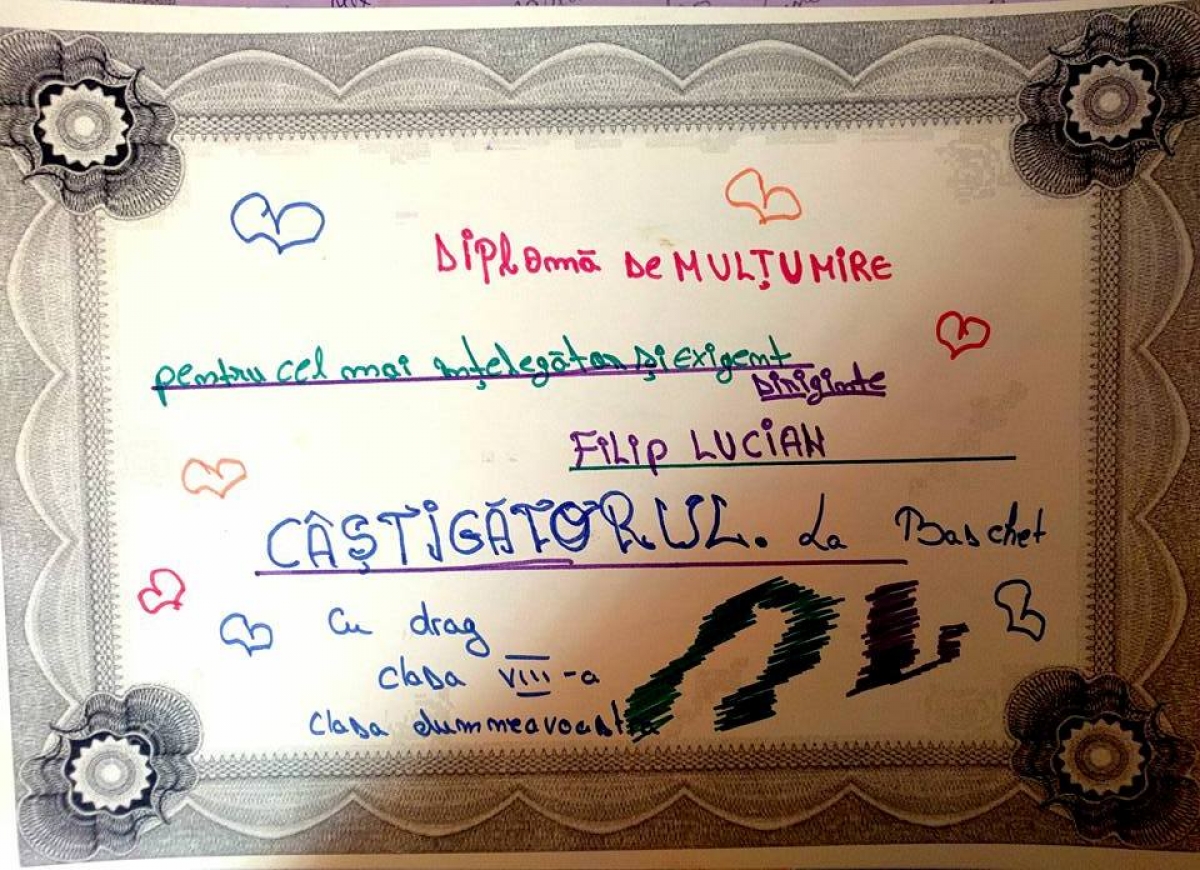 Diplomă de MULȚUMIRE
pentru cel mai înțelegător și exigent
diriginte
FiLip LUCiAN
CÂȘTiGĂTORUL. La Baschet
Cu drag
clasa VIII-a
clasa dumneavoastră